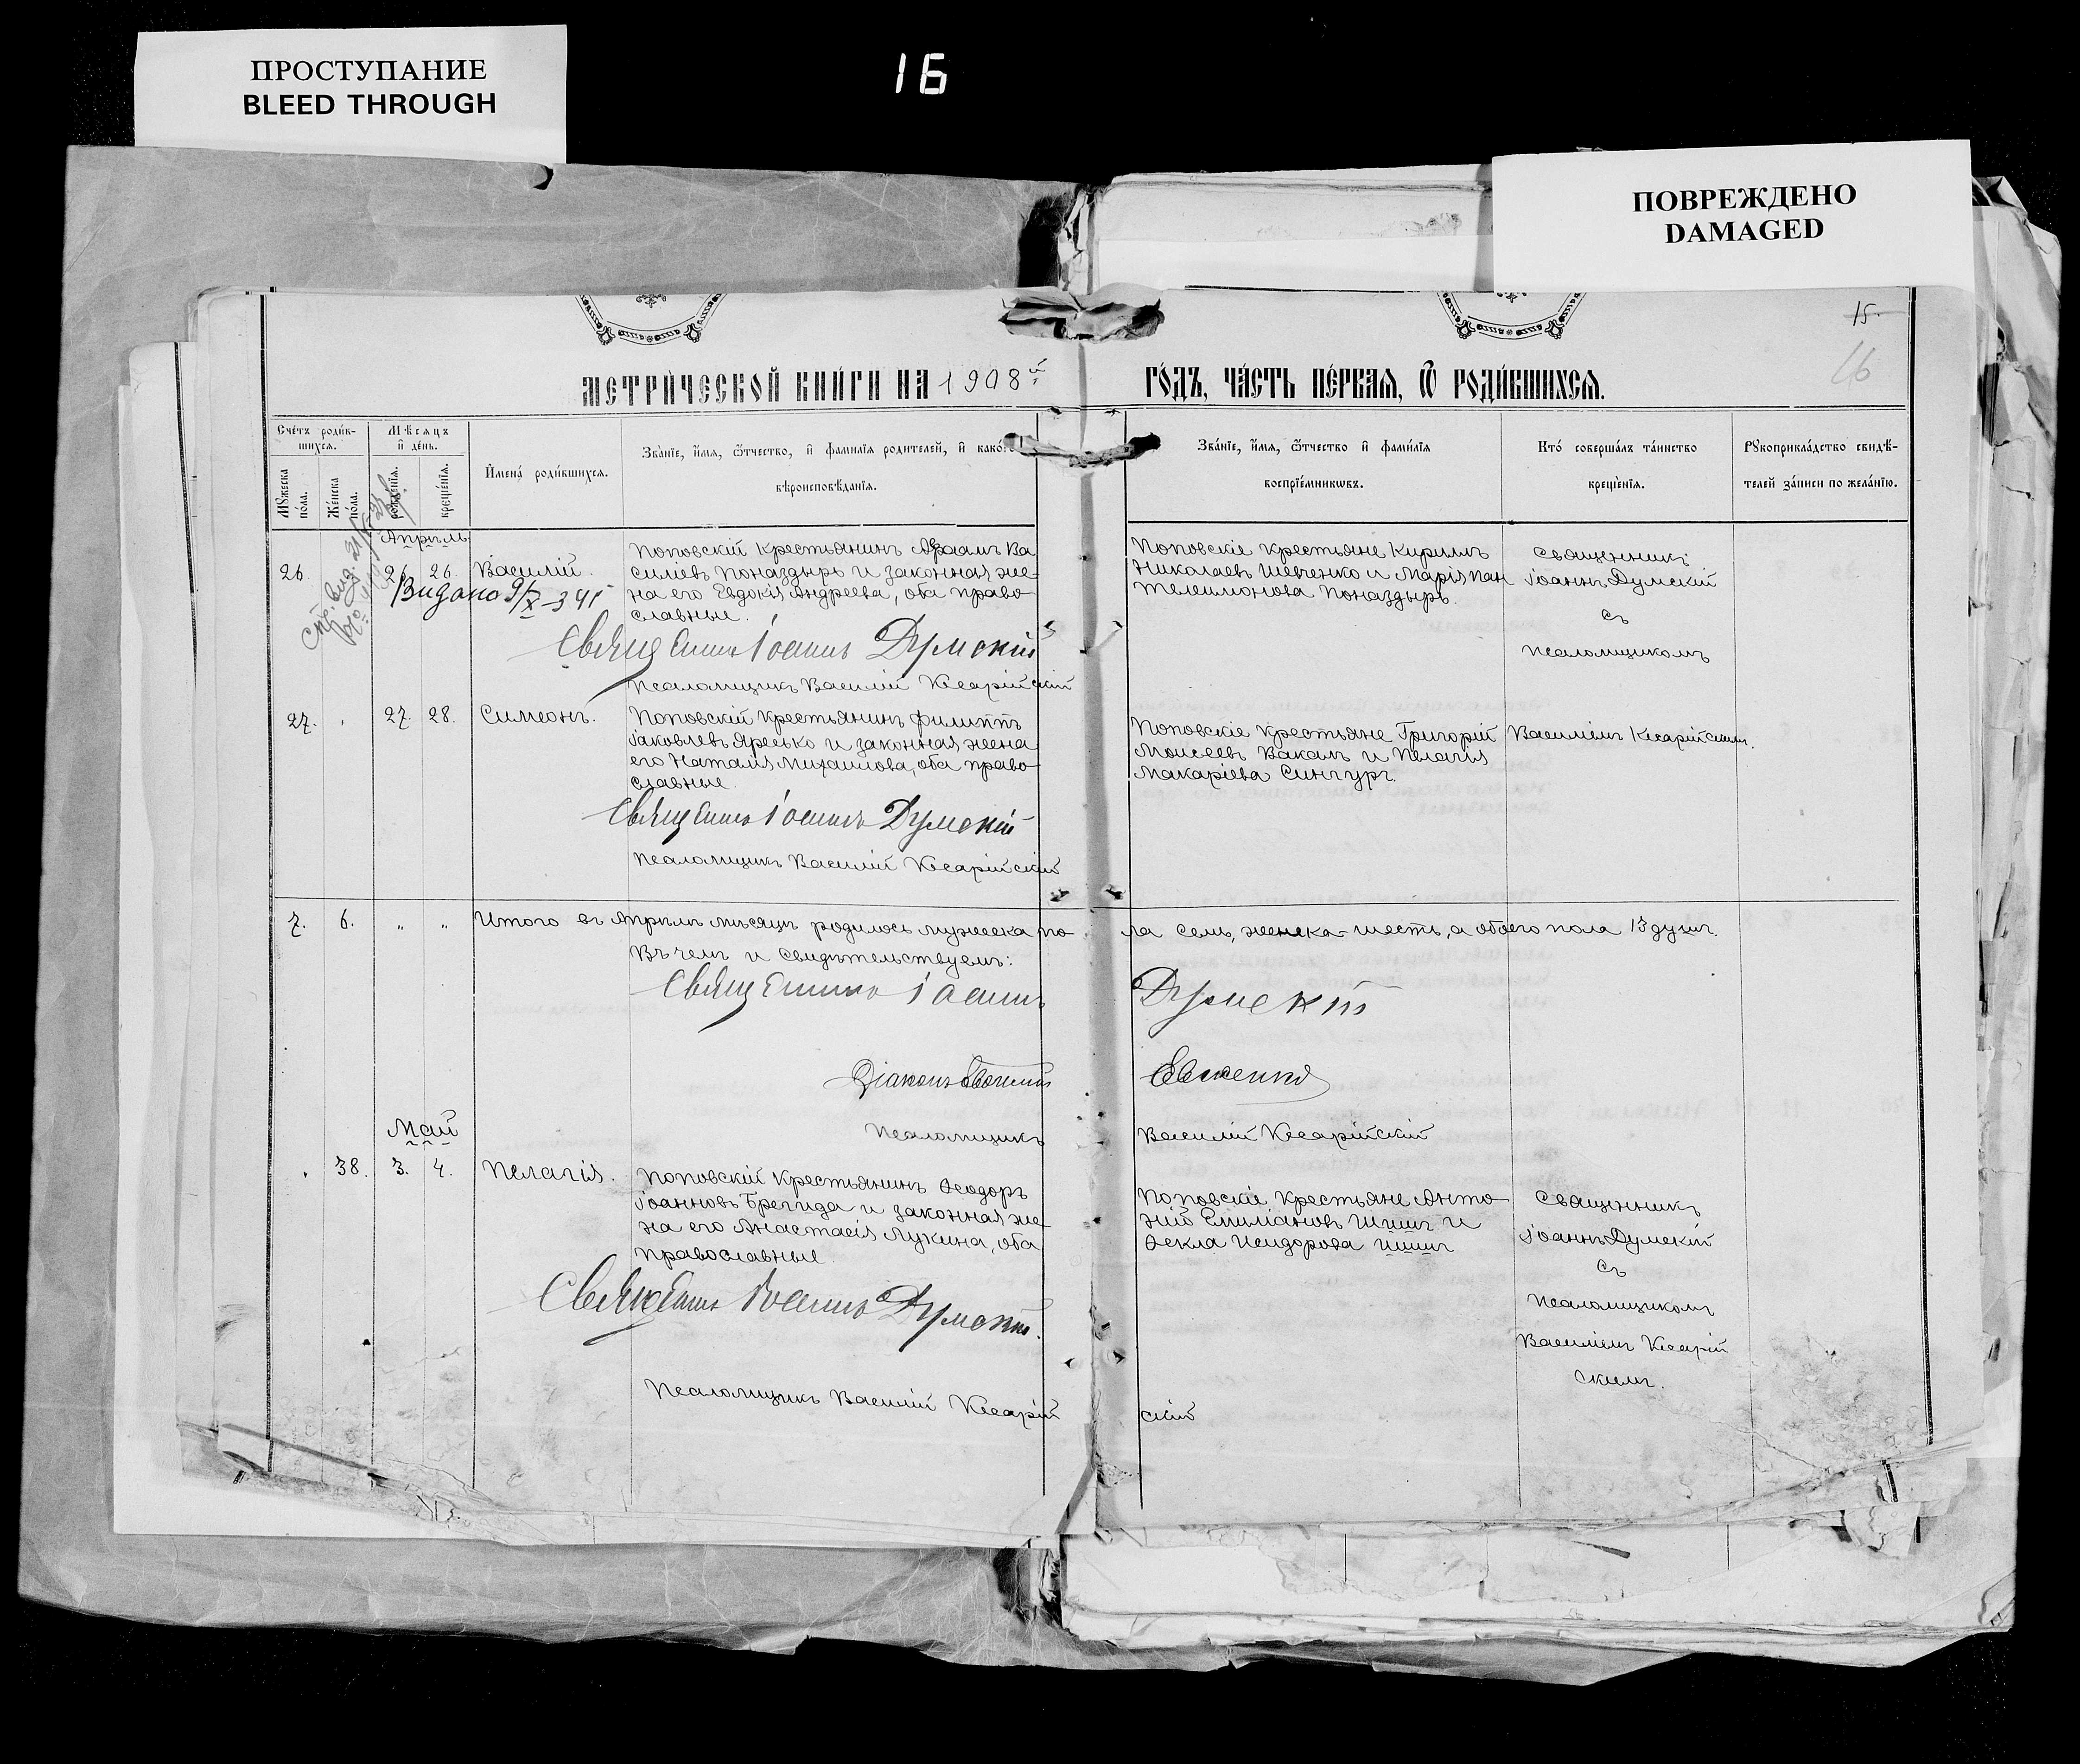 ПРОСТУПАНИЕ
BLEED THROUGH
16
ПОВРЕЖДЕНО
DAMAGED
15
16
МЕТРИ́ЧЕСКОЙ КНИ́ГИ НА 1908 й
ГО́ДЪ, ЧА́СТЬ ПЕ́РВАЯ, Ѽ РОДИ́ВШИХСЯ.
Сче́тъ роди́в-
шихся.
Мѣ́сяцъ
и҆ де́нь.
Мꙋ́жеска
по́ла.
Же́нска
по́ла.
рожде́нїя.
креще́нїя.
И҆мена́ роди́вшихся.
Зва́нїе, и҆́мя, ѻ҆́тчество, и҆ фами́лїя роди́телей, и҆ како́гѡ
вѣроисповѣ́данїя.
Зва́нїе, и҆́мя, ѻ҆́тчество и҆ фами́лїя
воспрїе́мникѡвъ.
Кто́ соверша́лъ та́инство
креще́нїя.
Рꙋкоприкла́дство свидѣ́-
телей за́писи по жела́нїю.
Апрѣль
26. 26. 26. Василій.
Поповскій крестьянинъ Авраамъ Ва
силіевъ Поназдырь и законная же-
на его Евдокія Андреева, оба право
славные.
Видано 9/X-341
Священникъ Іоаннъ Думскій
Псаломщикъ Василій Кесарійскій
Поповскіе крестьяне Кириллъ
Николаевъ Шевченко и Марія Пан
телеимонова Поназдырь.
Священникъ
Іоаннъ Думскій
съ
псаломщикомъ
27. 27. 28. Симеонъ.
Поповскій крестьянинъ Филиппъ
Іаковлевъ Яресько и законная жена
его Наталія Михаилова, оба право
славные.
Священникъ Іоаннъ Думскій
Псаломщикъ Василій Кесарійскій
Поповскіе крестьяне Григорій
Моисеевъ Вакалъ и Пелагія
Макаріева Сингуръ
Василіемъ Кесарійскимъ.
7. 6. „ „ Итого въ Апрѣлѣ мѣсяцѣ родилось мужеска по
ла семь, женска-шесть, а обоего пола 13 душъ.
Въ чемъ и свидѣтельствуемъ:
Священникъ Іоаннъ Думскій
Діаконъ Евсеенко
Псаломщикъ Василій Кесарійскій
Май
38. 3. 4. Пелагія.
Поповскій крестьянинъ Ѳеодоръ
Іоанновъ Брегида и законная же-
на его Анастасія Лукина, оба
православные
Священникъ Іоаннъ Думскій.
Псаломщикъ Василій Кесарій
скій
Поповскіе крестьяне Анто-
ній Емиліановъ Шишъ и
Ѳекла Исидорова Шишъ
Священникъ
Іоаннъ Думскій
съ
псаломщикомъ
Василіемъ Кесарій
скимъ.